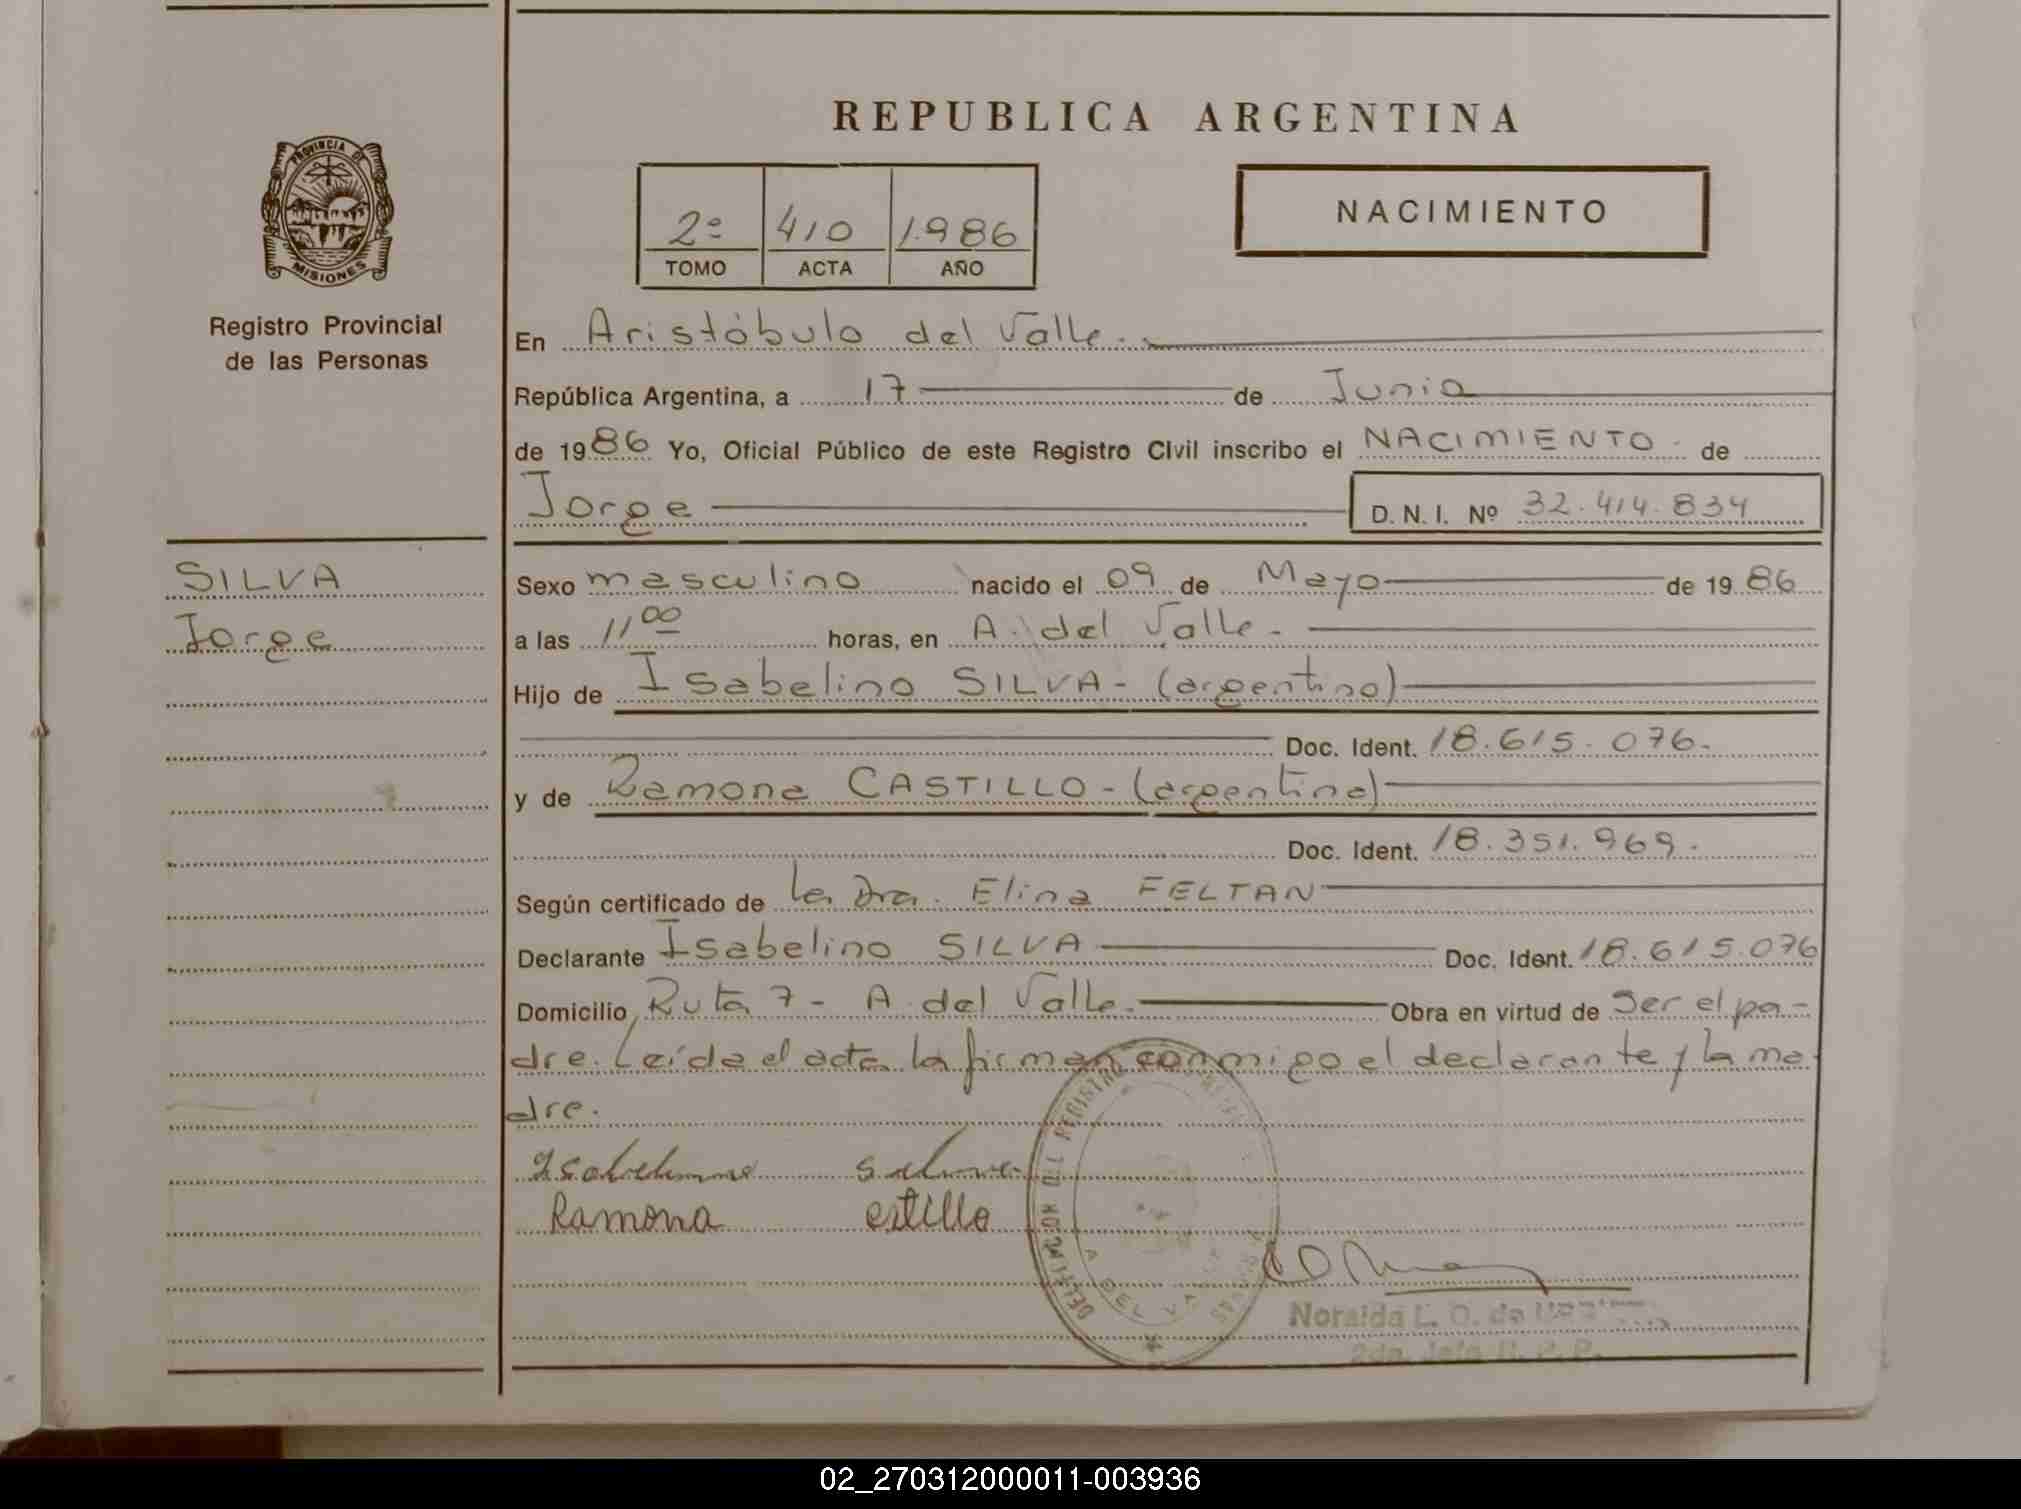 REPUBLICA ARGENTINA
PROVINCIA DE
MISIONES
Registro Provincial
de las Personas
2º 410 1986
TOMO ACTA AÑO
NACIMIENTO
En Aristóbulo del Valle.
República Argentina, a 17 de Junio
de 1986 Yo, Oficial Público de este Registro Civil inscribo el NACIMIENTO de
Jorge D. N. I. Nº 32.414.834
SILVA
Jorge
Sexo masculino nacido el 09 de Mayo de 1986
a las 11 00 horas, en A. del Valle.
Hijo de Isabelino SILVA - (argentino)
Doc. Ident. 18.615.076.
y de Ramona CASTILLO - (argentina)
Doc. Ident. 18.351.969.
Según certificado de la Dra. Elina FELTAN
Declarante Isabelino SILVA Doc. Ident. 18.615.076
Domicilio Ruta 7 - A. del Valle. Obra en virtud de Ser el pa-
dre. Leída el acta la firman conmigo el declarante y la ma-
dre.
Ramona
DEL REGISTRO
A DEL VALLE
Noraida L. O. de
2da. Jefa R. P. P.
02_270312000011-003936